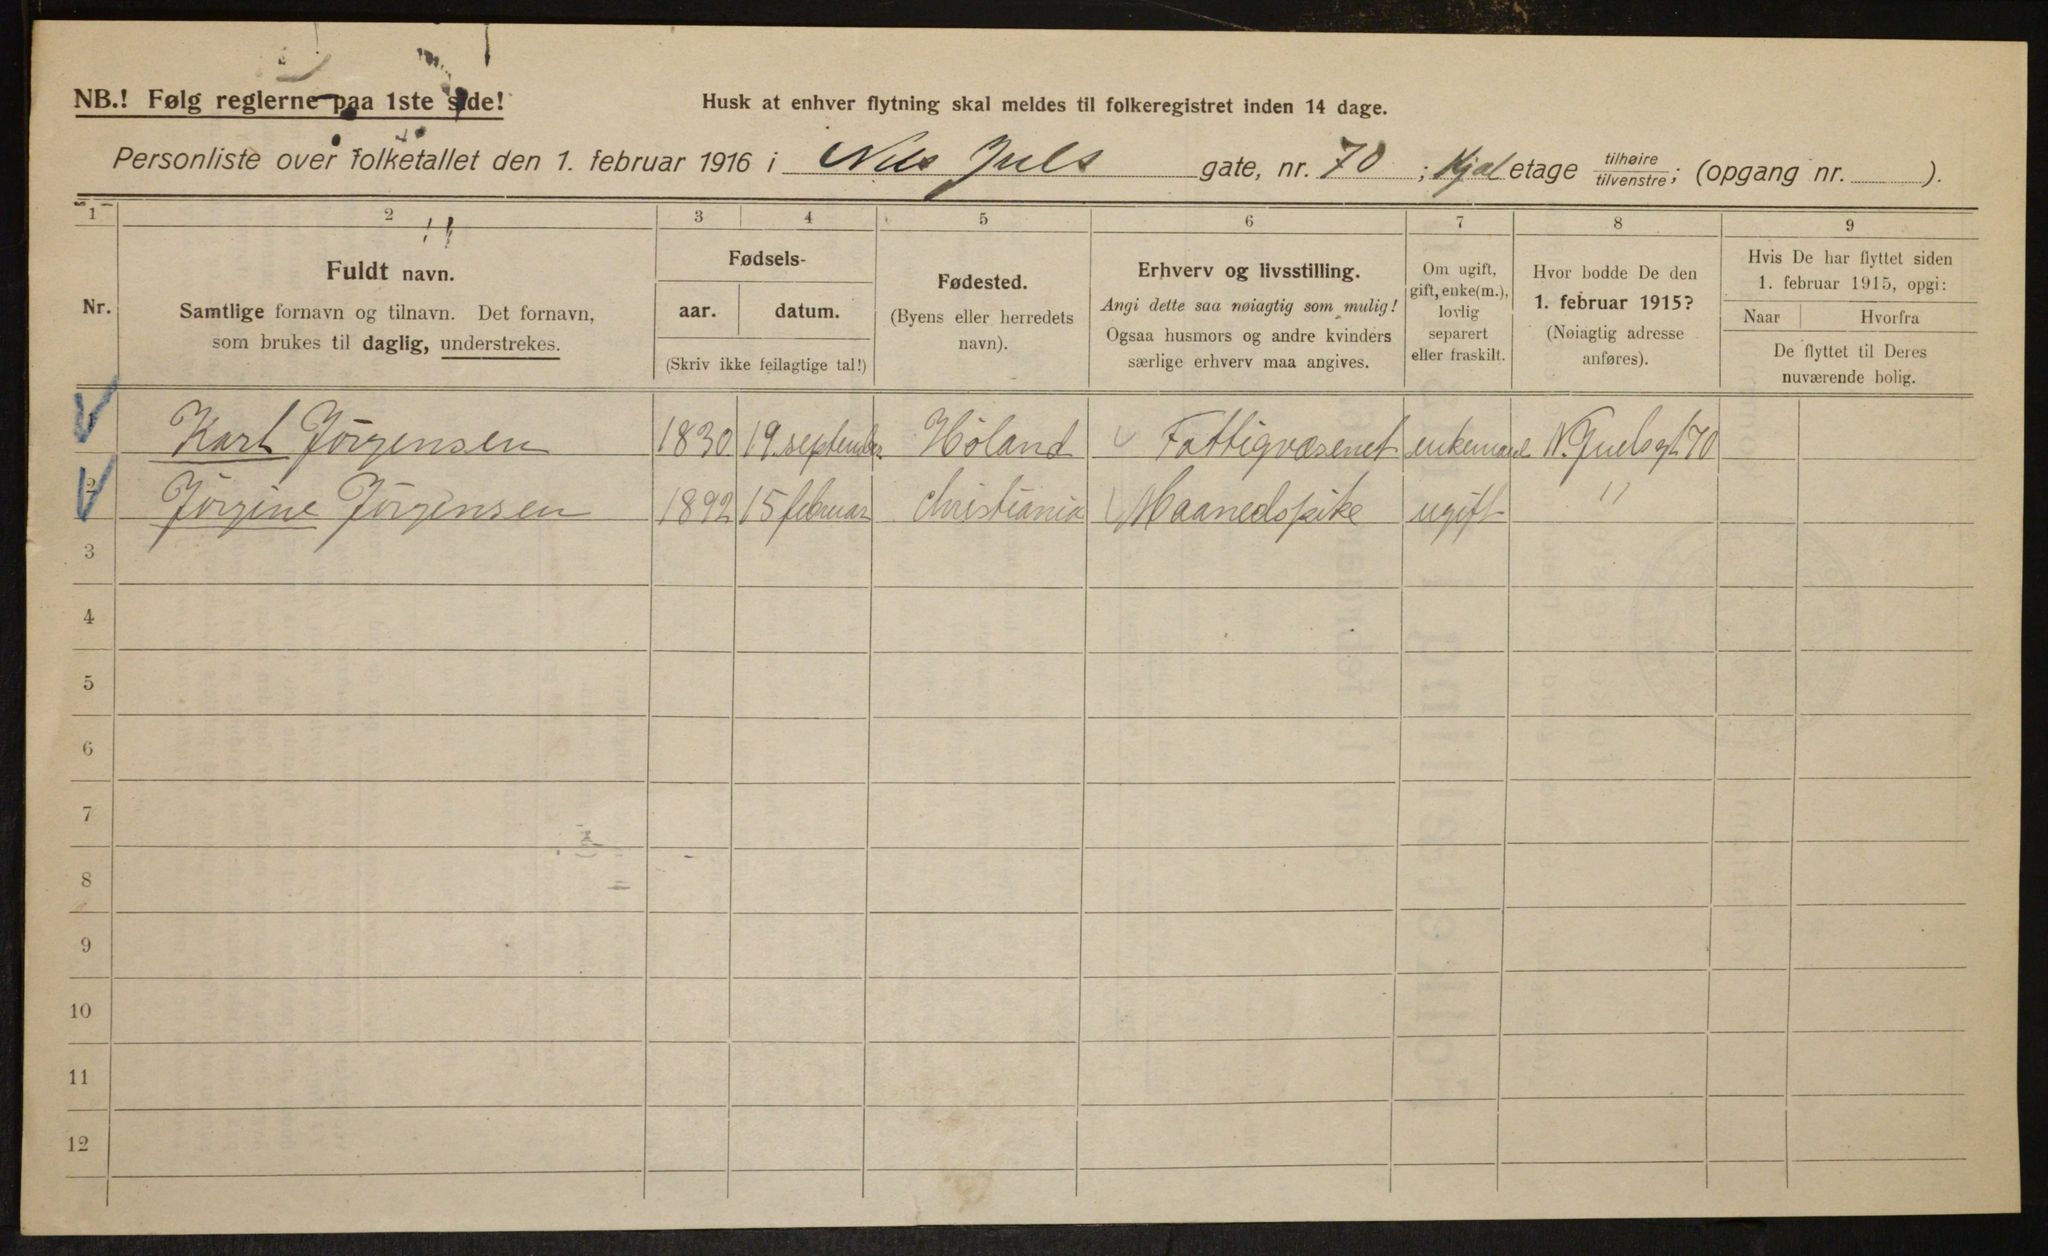 NB.! Følg reglerne paa 1ste side!
Husk at enhver flytning skal meldes til folkeregistret inden 14 dage.
Personliste over folketallet den 1. februar 1916 i Nils Juls gate, nr. 70; Kjæl etage tilhøire tilvenstre; (opgang nr. ).
1 2 3 4 5 6 7 8 9
Nr.
Fuldt navn.
Samtlige fornavn og tilnavn. Det fornavn,
som brukes til daglig, understrekes.
Fødsels-
aar. datum.
(Skriv ikke feilagtige tal!)
Fødested.
(Byens eller herredets
navn).
Erhverv og livsstilling.
Angi dette saa nøiagtig som mulig!
Ogsaa husmors og andre kvinders
særlige erhverv maa angives.
Om ugift,
gift, enke(m.),
lovlig
separert
eller fraskilt.
Hvor bodde De den
1. februar 1915?
(Nøiagtig adresse
anføres).
Hvis De har flyttet siden
1. februar 1915, opgi:
Naar Hvorfra
De flyttet til Deres
nuværende bolig.
1 Karl Jörgensen 1830 19. september Höland Fattigvæsenet enkemand N. Juelsgt 70
2 Jörgine Jörgensen 1892 15 februar Christiania Maanedspike ugift "
3
4
5
6
7
8
9
10
11
12